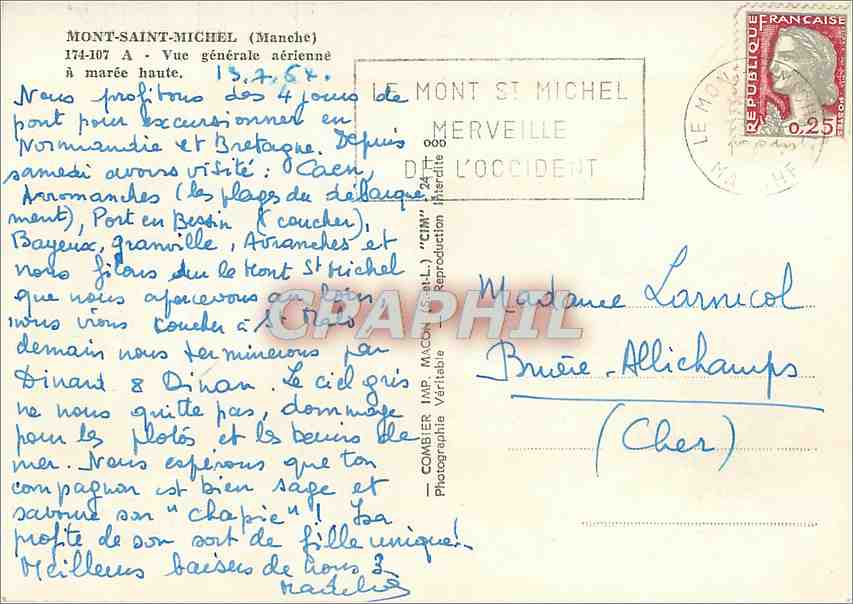 MONT-SAINT-MICHEL (Manche)
174-107 A - Vue générale aérienne
à marée haute.
13.7.64.
Nous profitons des 4 jours de
pont pour excursionner en
Normandie et Bretagne. Depuis
samedi avons visité : Caen,
Arromanches (les plages du débarque
ment), Port en Bessin (coucher),
Bayeux, granville, Avranches et
nous filons sur le Mont St Michel
que nous apercevons au loin
nous irons coucher à St Malo,
demain nous terminerons par
Dinard & Dinan. Le ciel gris
ne nous quitte pas, dommage
pour les photos et les bains de
mer. Nous espérons que ton
compagnon est bien sage et
savoure son "chapie" ! Isa
profite de son sort de fille unique!
Meilleurs baisers de nous 3
LE MONT St MICHEL
MERVEILLE
DE L'OCCIDENT
LE MONT
MANCHE
REPUBLIQUE FRANÇAISE
POSTES
0,25
— COMBIER IMP. MACON (S.-et-L.) "CIM"
Photographie Véritable - Reproduction Interdite
24 000
CPAPHIL
Madame Larnicol
Bruère-Allichamps
(Cher)